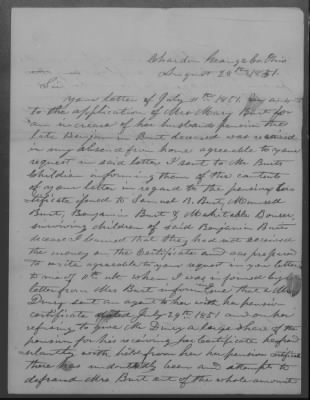 Chardon Geauga Co Ohio
August 28th 1851.
Sir
Your letter of July 11th 1851. in
to the application of Mrs Mary Burt for
an increase of her husband pension the
late Benjamin Burt deceased was received
in my absence from home agreeable to your
request in said letter I sent to Mr Burts
Children informing them of the contents
of your letter in regard to the pension Cer
tificate issued to Samuel B. Burt,
Burt, Benjamin Burt & Mahitable
surviving children of said Benjamin Burt
deceased I learned that they had not received
the money on the Certificate and was prepared
to write agreeable to your request in your letter
to me of 11th ult when I was informed by a
letter from Mrs Burt informing me that a Mr
Durey sent an agent to her with her pension
certificate dated July 29th 1851 and on her
refusing to give Mr Durey a large share of the
pension for his receiving her Certificate he
with held from her her pension certificate
there has undoubtedly been and attempt to
defraud Mrs Burt out of the whole amount